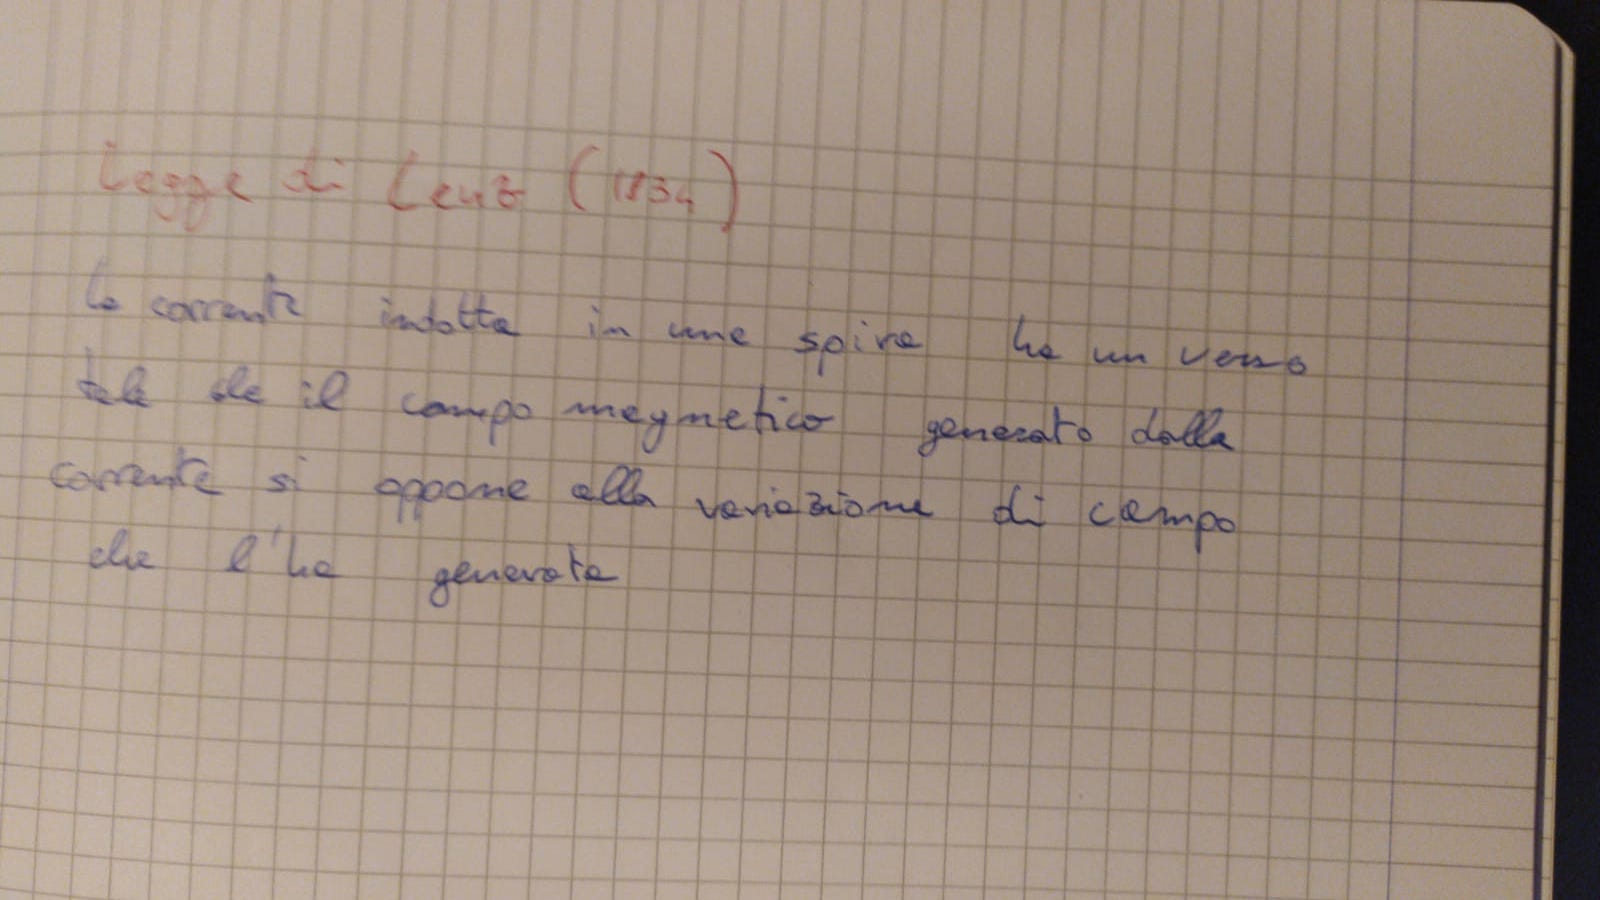 Legge di Lenz (1834)
la corrente indotta in una spira ha un verso
tale che il campo magnetico generato dalla
corrente si oppone alla variazione di campo
che l'ha generata